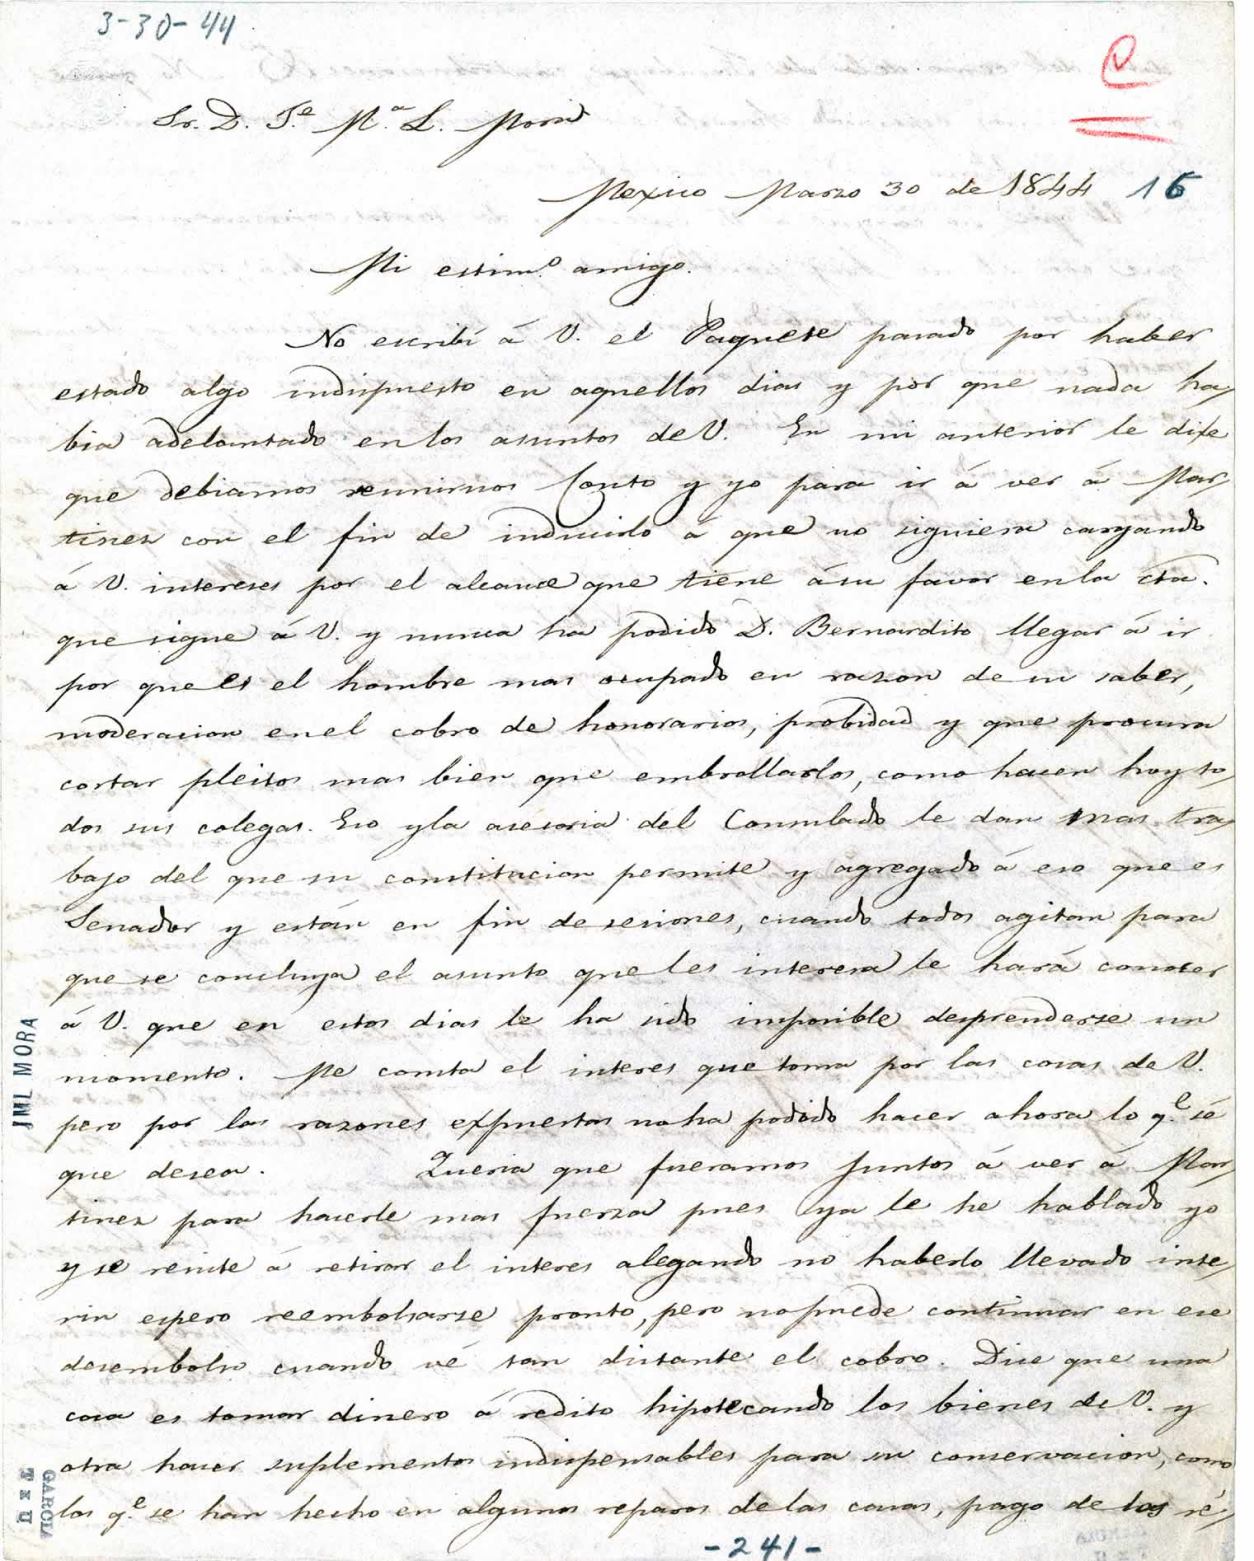 3-30-44
Sr. D. J.e M.a L. Mora
Mexico Marzo 30 de 1844 16
Mi estim.o amigo.
No escribí á V. el Paquete pasado por haber
estado algo indispuesto en aquellos dias y por que nada ha-
bia adelantado en los asuntos de V. En mi anterior le dije
que debiamos reunirnos Couto y yo para ir á ver á Mar-
tinez con el fin de inducirlo á que no siguiera cargando
á V. intereses por el alcance que tiene á su favor en la cta.
que sigue á V. y nunca ha podido D. Bernardito llegar á ir
por que es el hombre mas ocupado en razon de su saber,
moderacion en el cobro de honorarios, probidad y que procura
cortar pleitos mas bien que embrollarlos, como hacen hoy to-
dos sus colegas. Eso y la asesoria del Consulado le dan mas tra-
bajo del que su constitucion permite y agregado á eso que es
Senador y están en fin de sesiones, cuando todos agitan para
que se concluya el asunto que les interesa le hará conocer
á V. que en estos dias le ha sido imposible desprenderse un
momento. Me consta el interes que toma por las cosas de V.
pero por las razones expuestas no ha podido hacer ahora lo q.e sé
que desea. Queria que fueramos juntos á ver á Mar-
tinez para hacerle mas fuerza pues ya le he hablado yo
y se resiste á retirar el interes alegando no haberlo llevado inte-
rin espero reembolsarse pronto, pero no puede continuar en ese
desembolso cuando vé tan distante el cobro. Dice que una
cosa es tomar dinero á redito hipotecando los bienes de V. y
otra hacer suplementos indispensables para su conservacion, como
los q.e se han hecho en algunos reparos de las casas, pago de los ré-
JML MORA
GARCIA
U T x
-241-